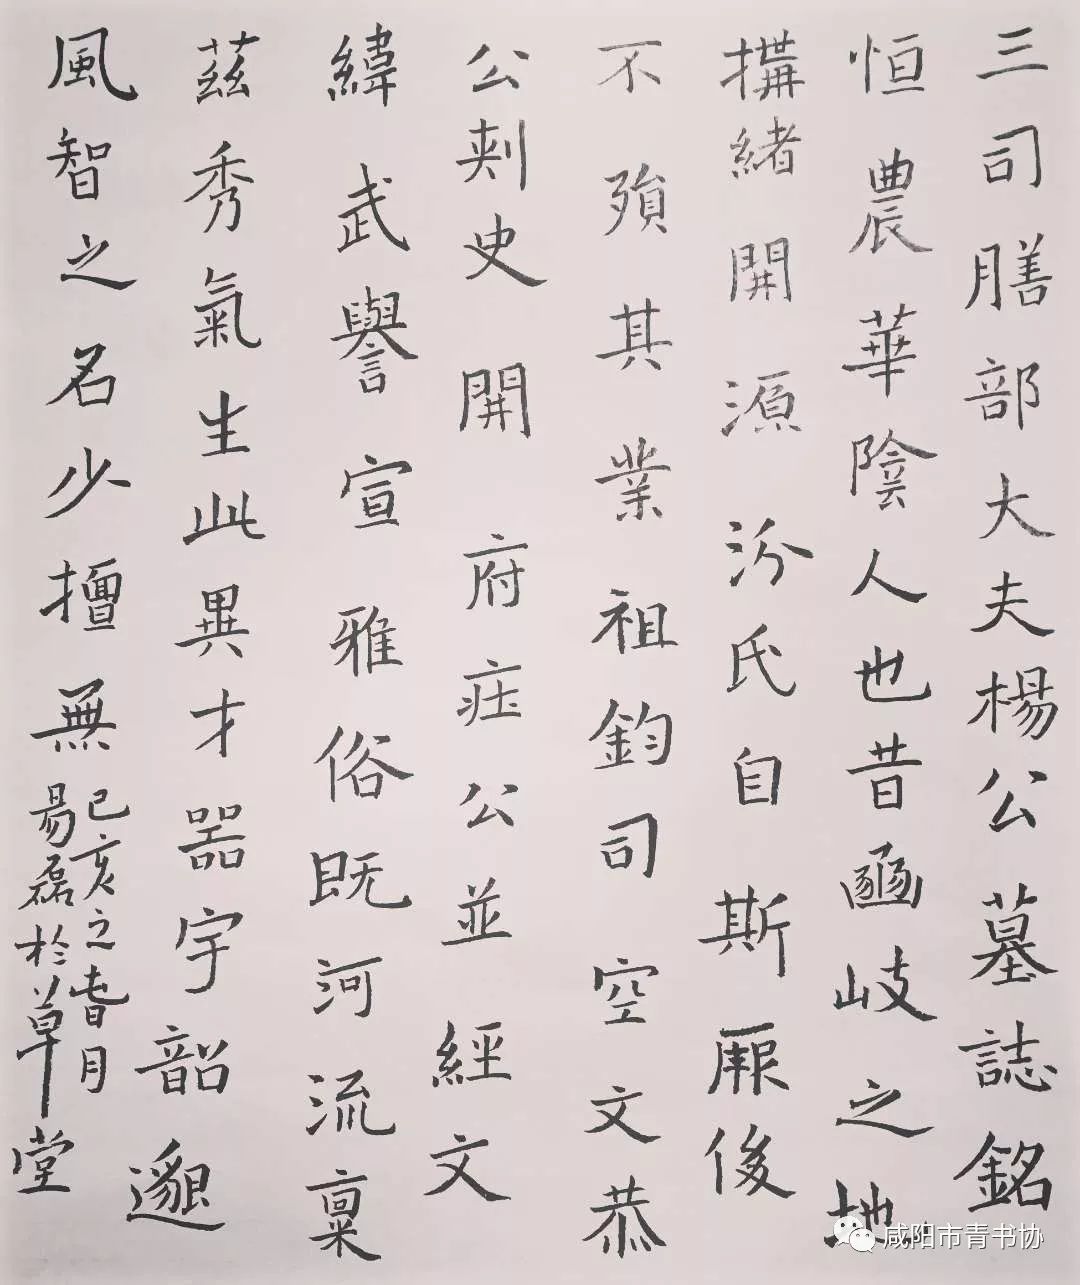 三司膳部大夫楊公墓誌銘
恒農華陰人也昔豳岐之地
構緒開源汾氏自斯厥後
不殞其業祖鈞司空文恭
公刺史開府莊公並經文
緯武譽宣雅俗既河流稟
茲秀氣生此異才器宇韶邈
風智之名少擅無
己亥之春月
易磊於草堂
咸阳市青书协